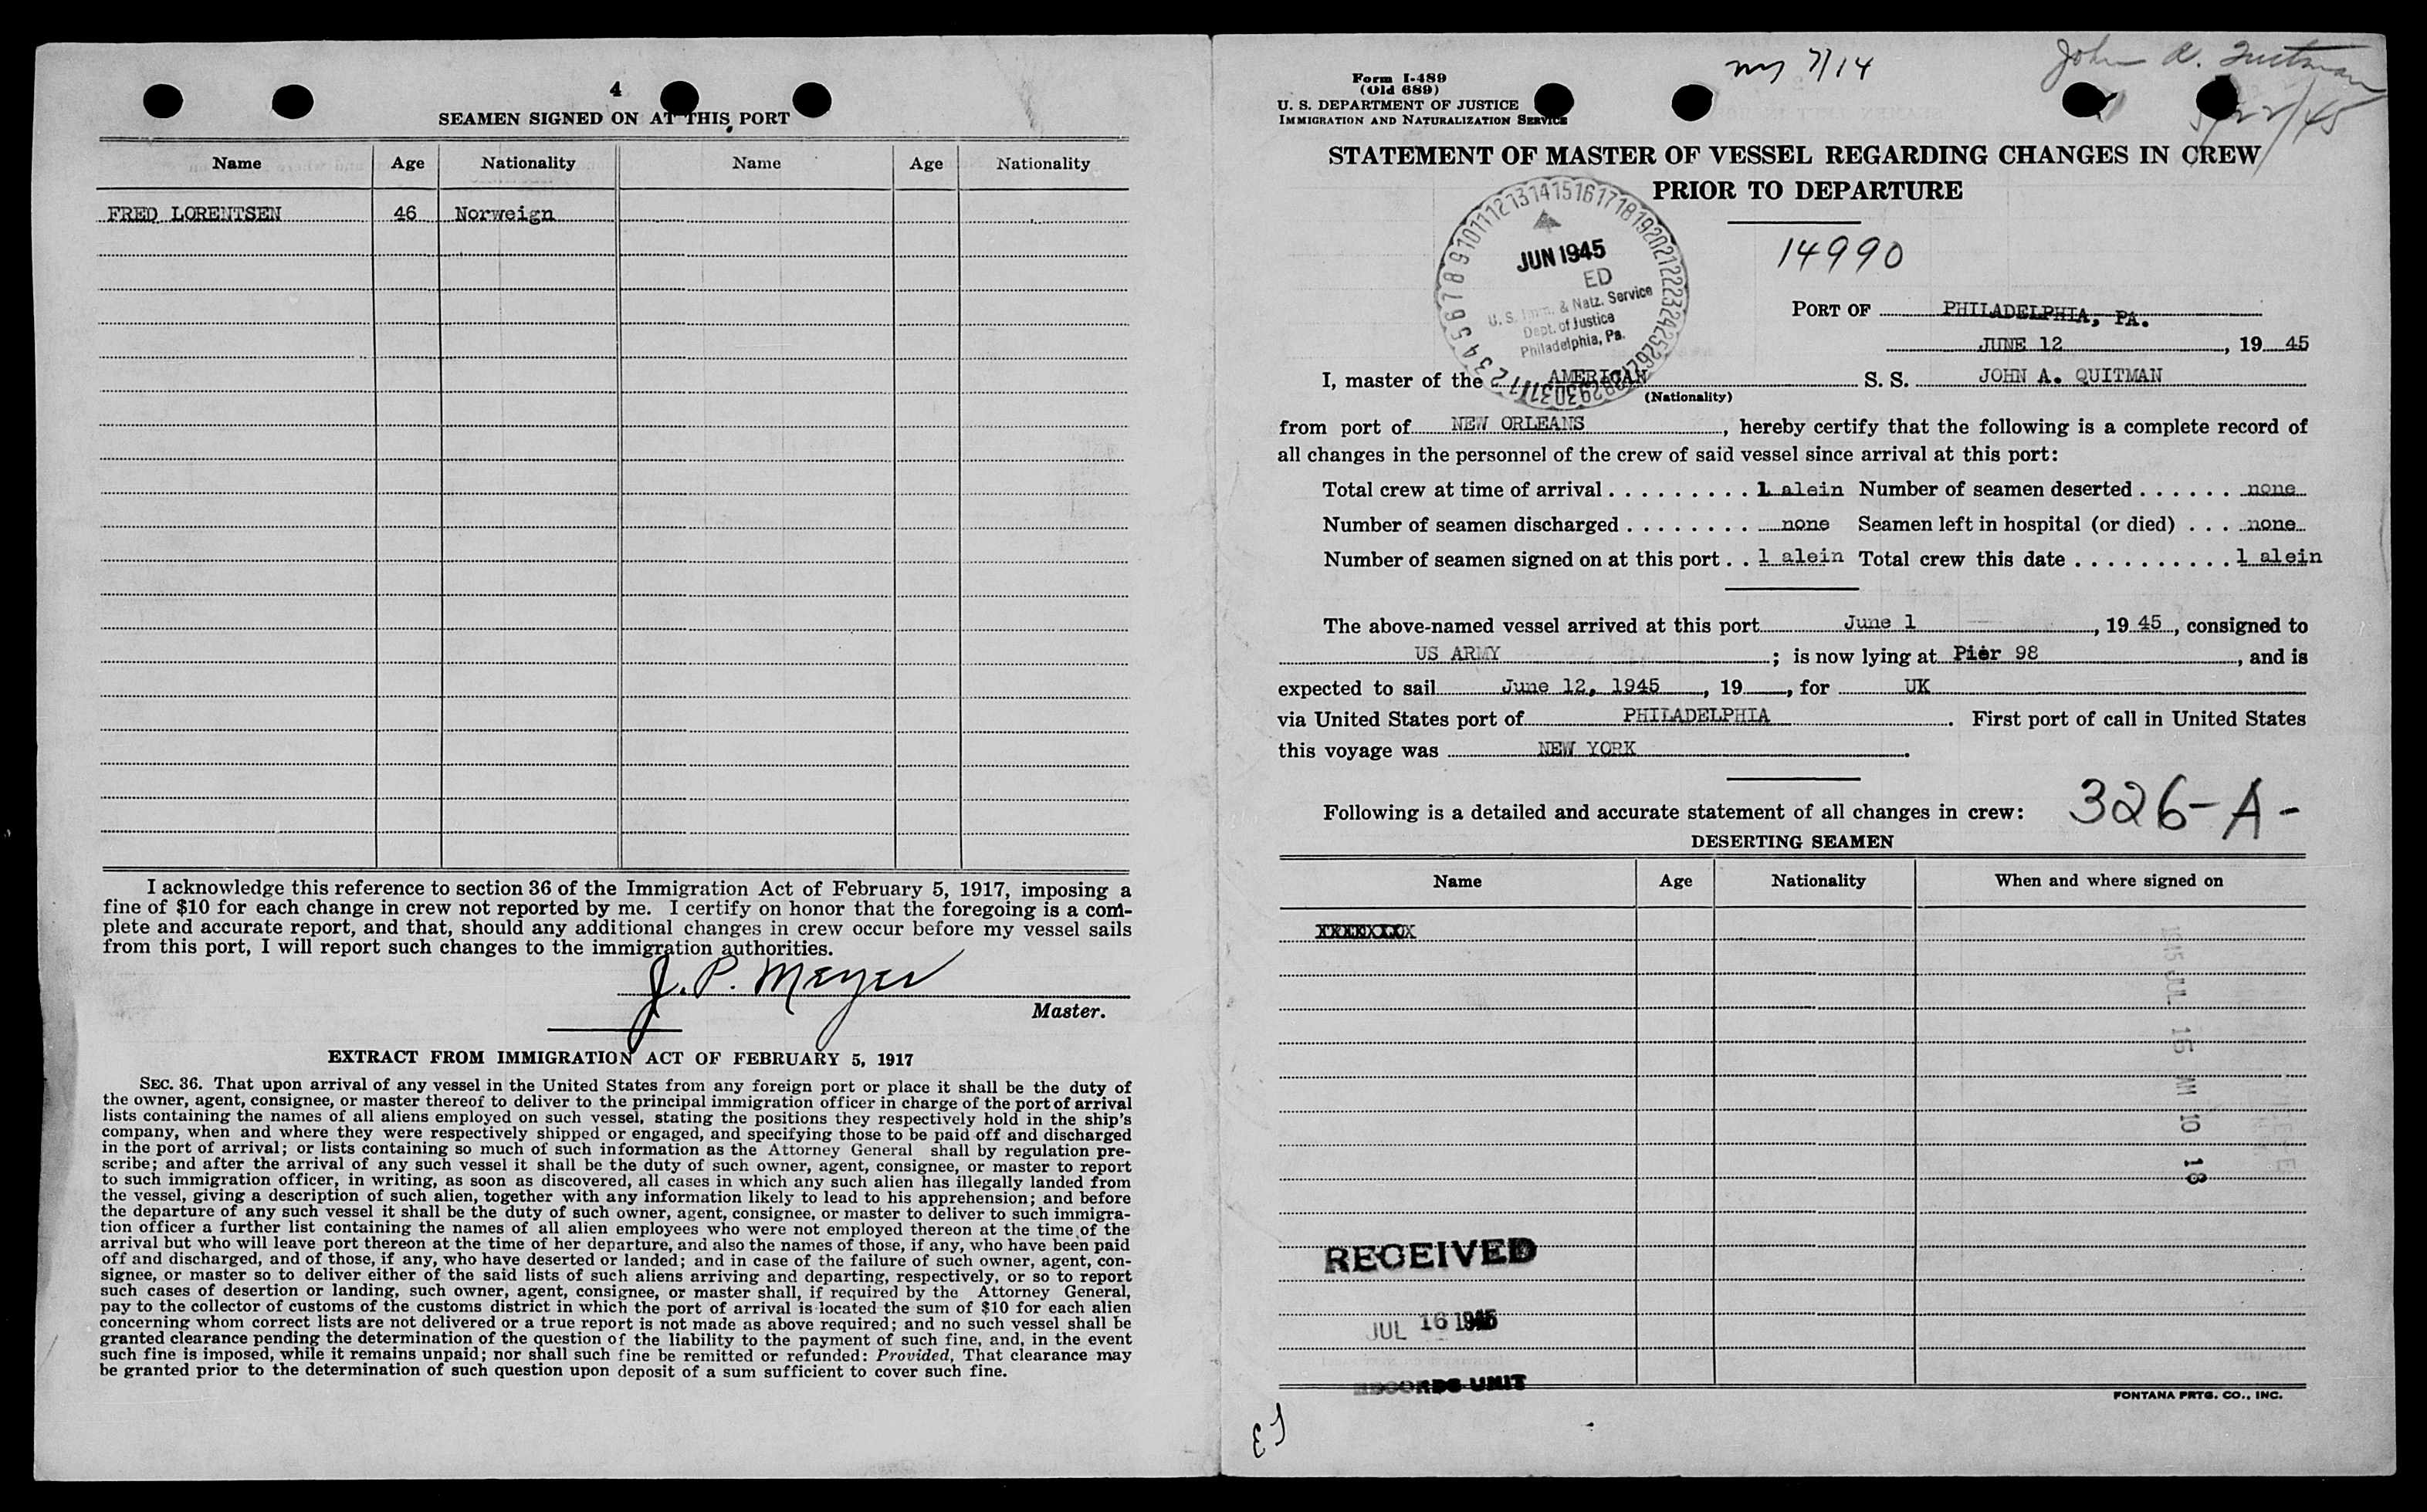 4
SEAMEN SIGNED ON AT THIS PORT
Name Age Nationality Name Age Nationality
FRED LORENTSEN 46 Norweign
I acknowledge this reference to section 36 of the Immigration Act of February 5, 1917, imposing a
fine of $10 for each change in crew not reported by me. I certify on honor that the foregoing is a com-
plete and accurate report, and that, should any additional changes in crew occur before my vessel sails
from this port, I will report such changes to the immigration authorities.
J. P. Meyer
Master.
EXTRACT FROM IMMIGRATION ACT OF FEBRUARY 5, 1917
SEC. 36. That upon arrival of any vessel in the United States from any foreign port or place it shall be the duty of
the owner, agent, consignee, or master thereof to deliver to the principal immigration officer in charge of the port of arrival
lists containing the names of all aliens employed on such vessel, stating the positions they respectively hold in the ship's
company, when and where they were respectively shipped or engaged, and specifying those to be paid off and discharged
in the port of arrival; or lists containing so much of such information as the Attorney General shall by regulation pre-
scribe; and after the arrival of any such vessel it shall be the duty of such owner, agent, consignee, or master to report
to such immigration officer, in writing, as soon as discovered, all cases in which any such alien has illegally landed from
the vessel, giving a description of such alien, together with any information likely to lead to his apprehension; and before
the departure of any such vessel it shall be the duty of such owner, agent, consignee, or master to deliver to such immigra-
tion officer a further list containing the names of all alien employees who were not employed thereon at the time of the
arrival but who will leave port thereon at the time of her departure, and also the names of those, if any, who have been paid
off and discharged, and of those, if any, who have deserted or landed; and in case of the failure of such owner, agent, con-
signee, or master so to deliver either of the said lists of such aliens arriving and departing, respectively, or so to report
such cases of desertion or landing, such owner, agent, consignee, or master shall, if required by the Attorney General,
pay to the collector of customs of the customs district in which the port of arrival is located the sum of $10 for each alien
concerning whom correct lists are not delivered or a true report is not made as above required; and no such vessel shall be
granted clearance pending the determination of the question of the liability to the payment of such fine, and, in the event
such fine is imposed, while it remains unpaid; nor shall such fine be remitted or refunded: Provided, That clearance may
be granted prior to the determination of such question upon deposit of a sum sufficient to cover such fine.
7/14
John A. Quitman
5/22/45
Form I-489
(Old 689)
U. S. DEPARTMENT OF JUSTICE
IMMIGRATION AND NATURALIZATION SERVICE
STATEMENT OF MASTER OF VESSEL REGARDING CHANGES IN CREW
PRIOR TO DEPARTURE
JUN 1945
ED
U. S. Imm. & Natz. Service
Dept. of Justice
Philadelphia, Pa.
14990
PORT OF PHILADELPHIA, PA.
JUNE 12, 19 45
I, master of the AMERICAN S. S. JOHN A. QUITMAN
(Nationality)
from port of NEW ORLEANS, hereby certify that the following is a complete record of
all changes in the personnel of the crew of said vessel since arrival at this port:
Total crew at time of arrival . . . . . . . . . 1 alein Number of seamen deserted . . . . . . none
Number of seamen discharged . . . . . . . . none Seamen left in hospital (or died) . . . none
Number of seamen signed on at this port . . 1 alein Total crew this date . . . . . . . . . . 1 alein
The above-named vessel arrived at this port June 1, 19 45, consigned to
US ARMY; is now lying at Pier 98, and is
expected to sail June 12, 1945, 19 , for UK
via United States port of PHILADELPHIA. First port of call in United States
this voyage was NEW YORK.
326-A-
Following is a detailed and accurate statement of all changes in crew:
DESERTING SEAMEN
Name Age Nationality When and where signed on
1945 JUL 16 AM 10 18
RECEIVED
JUL 16 1945
RECORDS UNIT
FONTANA PRTG. CO., INC.